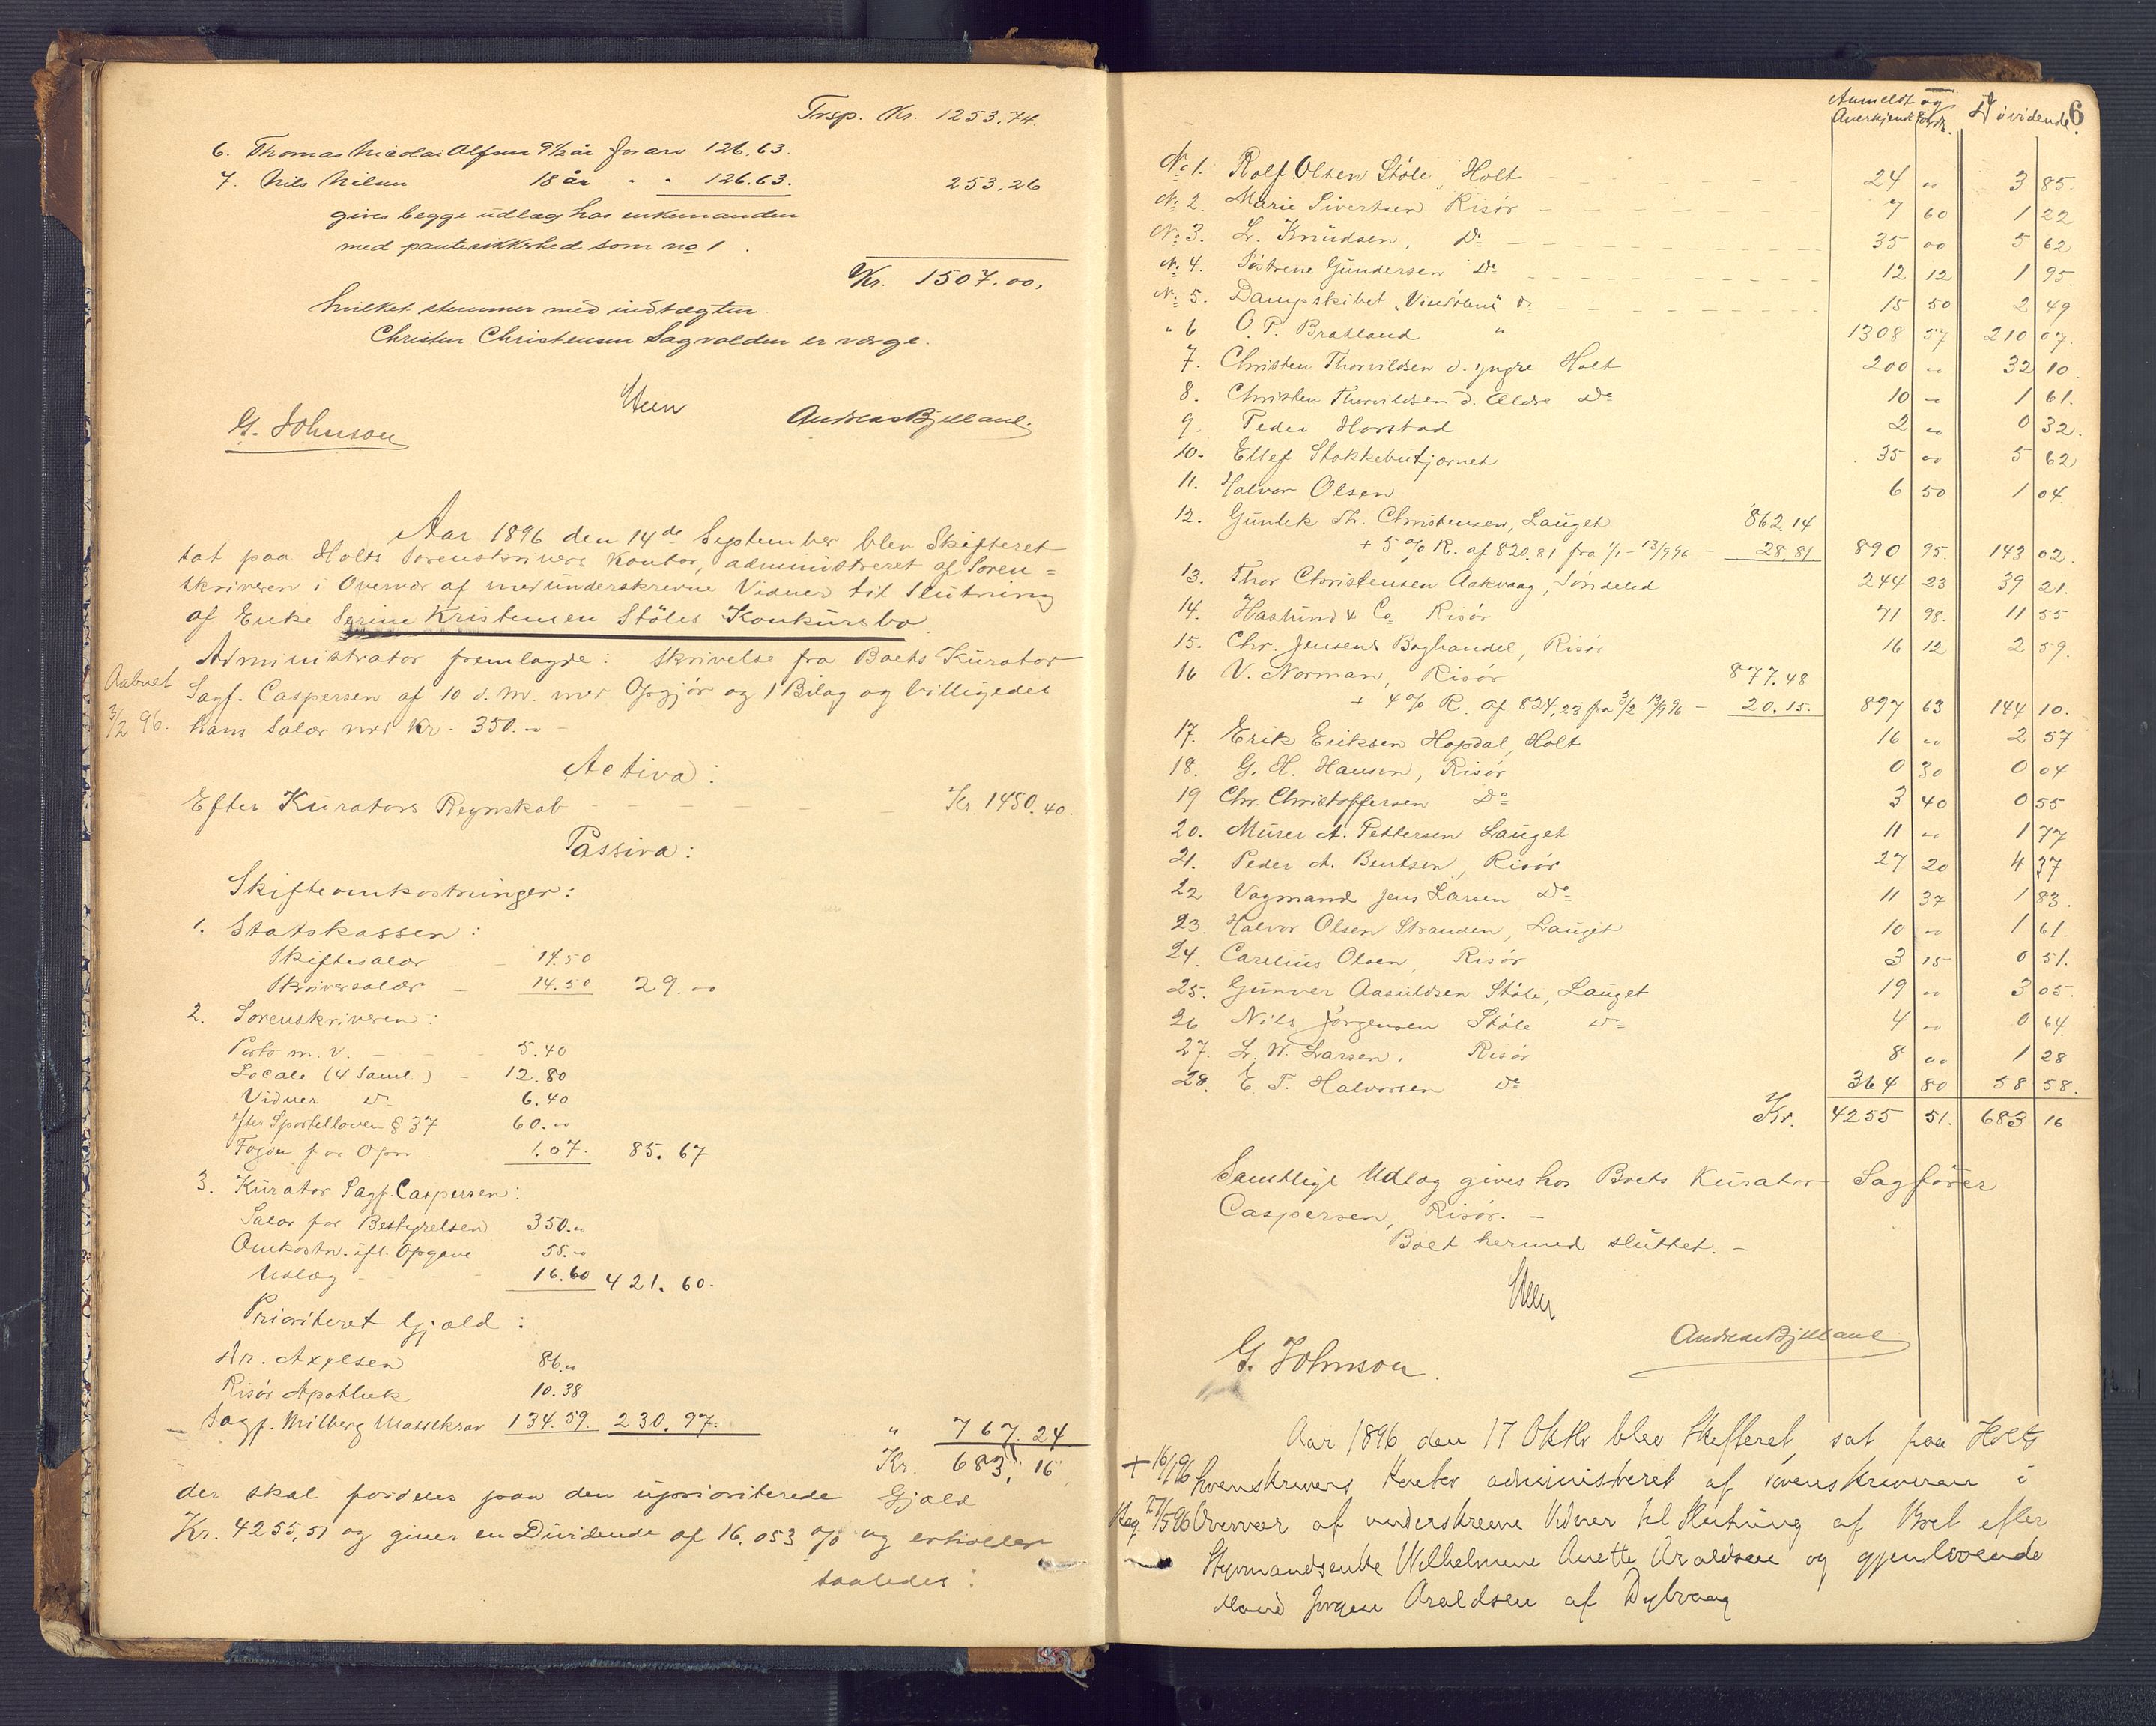 Trsp. Kr. 1253.74.
6. Thomas Nicolai Olsen 9½ år for arv 126.63.
7. Nils Nilsen 18 år " " 126.63. 253.26
gives begge udlæg hos enkemanden
med pantesikkerhed som no 1.
Kr. 1507.00.
hvilket stemmer med indtægten.
Christen Christensen Sagvolden er værge.
G. Johnson Andreas Bjelland.
Aar 1896 den 14de September blev Skifteret
sat paa Holts Sorenskrivers Kontor, administreret af Soren=
skriveren i Overvær af medunderskrevne Vidner til Slutning
af Enke Serine Kristensen Støles Konkursbo.
Administrator fremlagde: Skrivelse fra Boets Kurator
Aabnet
Sagf. Caspersen af 10 d. M. med Opgjør og 1 Bilag og billigedes
3/2 96.
ham Salær med Kr. 350.00 -
Activa:
Efter Kurators Regnskab - - - - Kr. 1450.40.
Passiva:
Skifteomkostninger:
1. Statskassen:
Skiftesalær - - 14.50
Skriversalær - 14.50 29.00
2. Sorenskriveren:
Porto m. v. - - - 5.40
Locale (4 Saml.) - 12.80
Vidner do 6.40
efter Sportelloven § 37 60.00
Fogden for Opn. 1.07. 85.67
3. Kurator Sagf. Caspersen:
Salær for Bestyrelsen 350.00
Omkostn. ifl. Opgave 55.00
Udlæg - - - 16.60 421.60.
Prioriteret Gjæld:
Dr. Axelsen 86.00
Risør Apothek 10.38
Sagf. Milberg Massekrav 134.59. 230.97.
" 767.24
Kr. 683,16
der skal fordeles paa den uprioriterede Gjæld
Kr. 4255,51 og giver en Dividende af 16,053 % og erholder
saaledes:
6
Anmeldt og
Anerkjendt Fordr. Dividende.
No 1. Rolf Olsen Støle, Holt - - - - 24 00 3 85.
No 2. Marie Sivertsen Risør - - - - 7 60 1 22
No 3. L. Knudsen, Do - - - - 35 00 5 62
No 4. Søstrene Gundersen Do - - - - 12 12 1 95.
No 5. Dampskibet "Vindølen" do - - - - 15 50 2 49
" 6 O. T. Brakland " 1308 57 210 07.
7. Christen Thorvildsen d. yngre Holt 200 00 32 10.
8. Christen Thorvildsen d. Ældre Do 10 00 1 61.
9. Peder Horstad 2 00 0 32.
10. Ellef Stokkebutjernet 35 00 5 62
11. Halvor Olsen 6 50 1 04.
12. Gunlek Th. Christensen, Lauget 862.14
+ 5 % R. af 820.81 fra 1/1 - 13/9 96 - 28.81. 890 95. 143 02.
13. Thor Christensen Aakvaag, Søndeled 244 23 39 21.
14. Haslund & Co Risør 71 98. 11 55
15. Chr. Jensens Boghandel, Risør 16 12 2 59.
16 V. Norman, Risør 877.48
+ 4 % R. af 824,23 fra 3/2 - 13/9 96 - 20.15. 897 63 144 10.
17. Erik Eriksen Hopdal, Holt 16 00 2 57
18. G. H. Hansen, Risør 0 30 0 04
19 Chr. Christoffersen Do 3 40 0 55
20. Murer A. Pettersen Lauget 11 00 1 77
21. Peder A. Bentsen, Risør 27 20 4 37
22 Vognmand Jens Larsen Do 11 37 1 83.
23. Halvor Olsen Stranden, Lauget 10 00 1 61.
24. Carelius Olsen, Risør 3 15 0 51.
25. Gunver Aasuldsen Støle, Lauget 19 00 3 05.
26 Nils Jørgensen Støle do 4 00 0 64.
27. L. W. Larsen, Risør 8 00 1 28
28. E. T. Halvorsen do 364 80 58 58.
Kr. 4255 51. 683 16
Samtlige Udlæg gives hos Boets Kurator Sagfører
Caspersen, Risør. -
Boet hermed sluttet. -
Andreas Bjelland
G. Johnson.
Aar 1896 den 17 Oktbr blev Skifteret sat paa Holts
+ 16/1 96 Sorenskrivers Kontor administreret af Sorenskriveren i
Reg 27/5 96 Overvær af underskrevne Vidner til Slutning af Boet efter
Styrmandsenke Wilhelmine Anette Araldsen og gjenlevende
Mand Jørgen Araldsen af Dybvaag